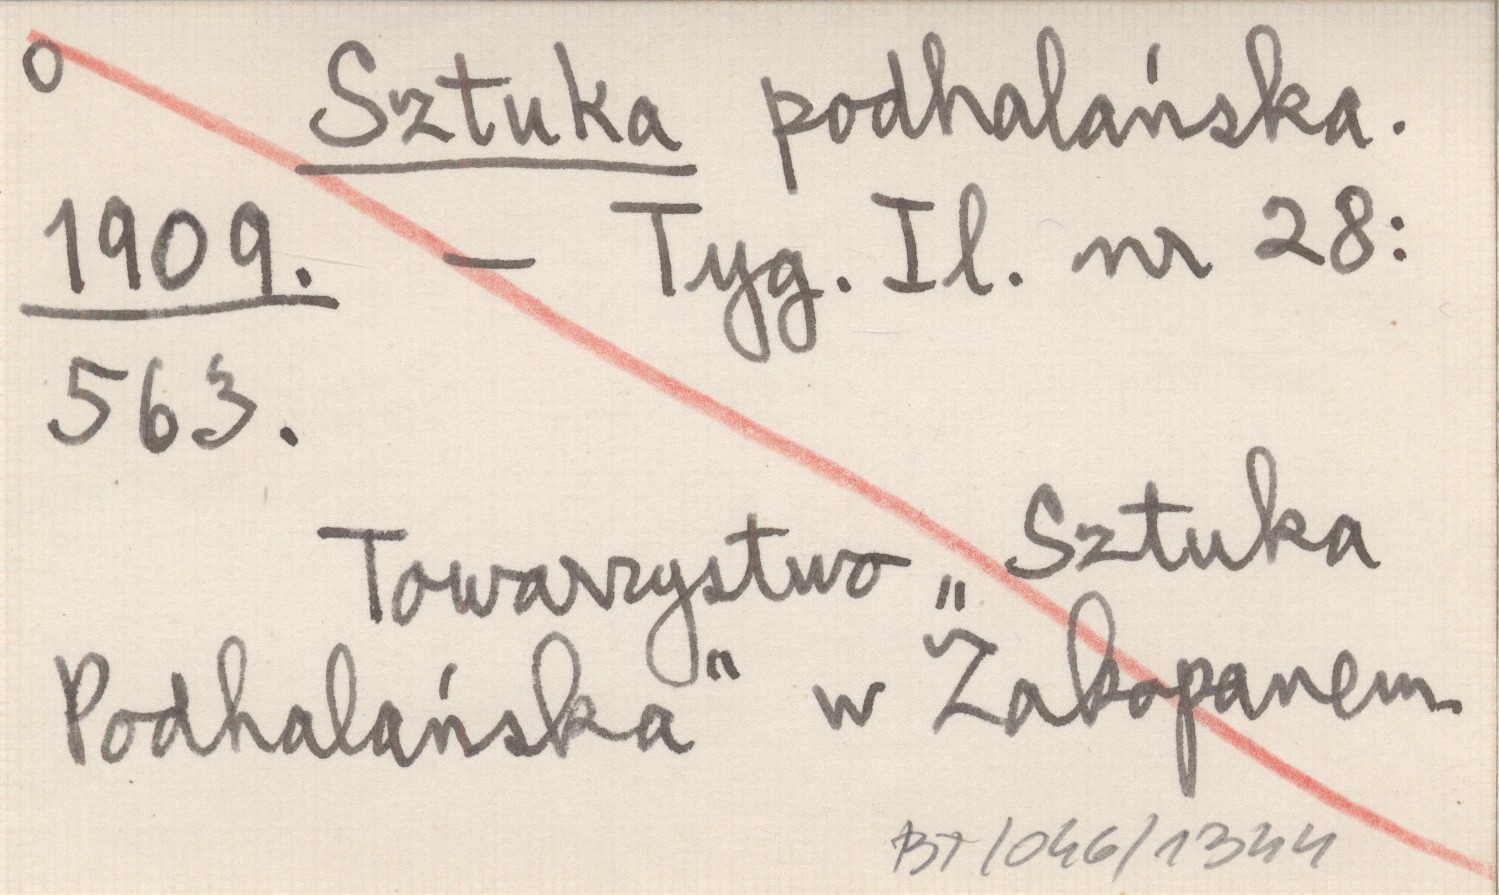 o Sztuka podhalańska.
1909. – Tyg. Il. nr 28:
563.
Towarzystwo „Sztuka
Podhalańska" w Zakopanem
BT/046/1344